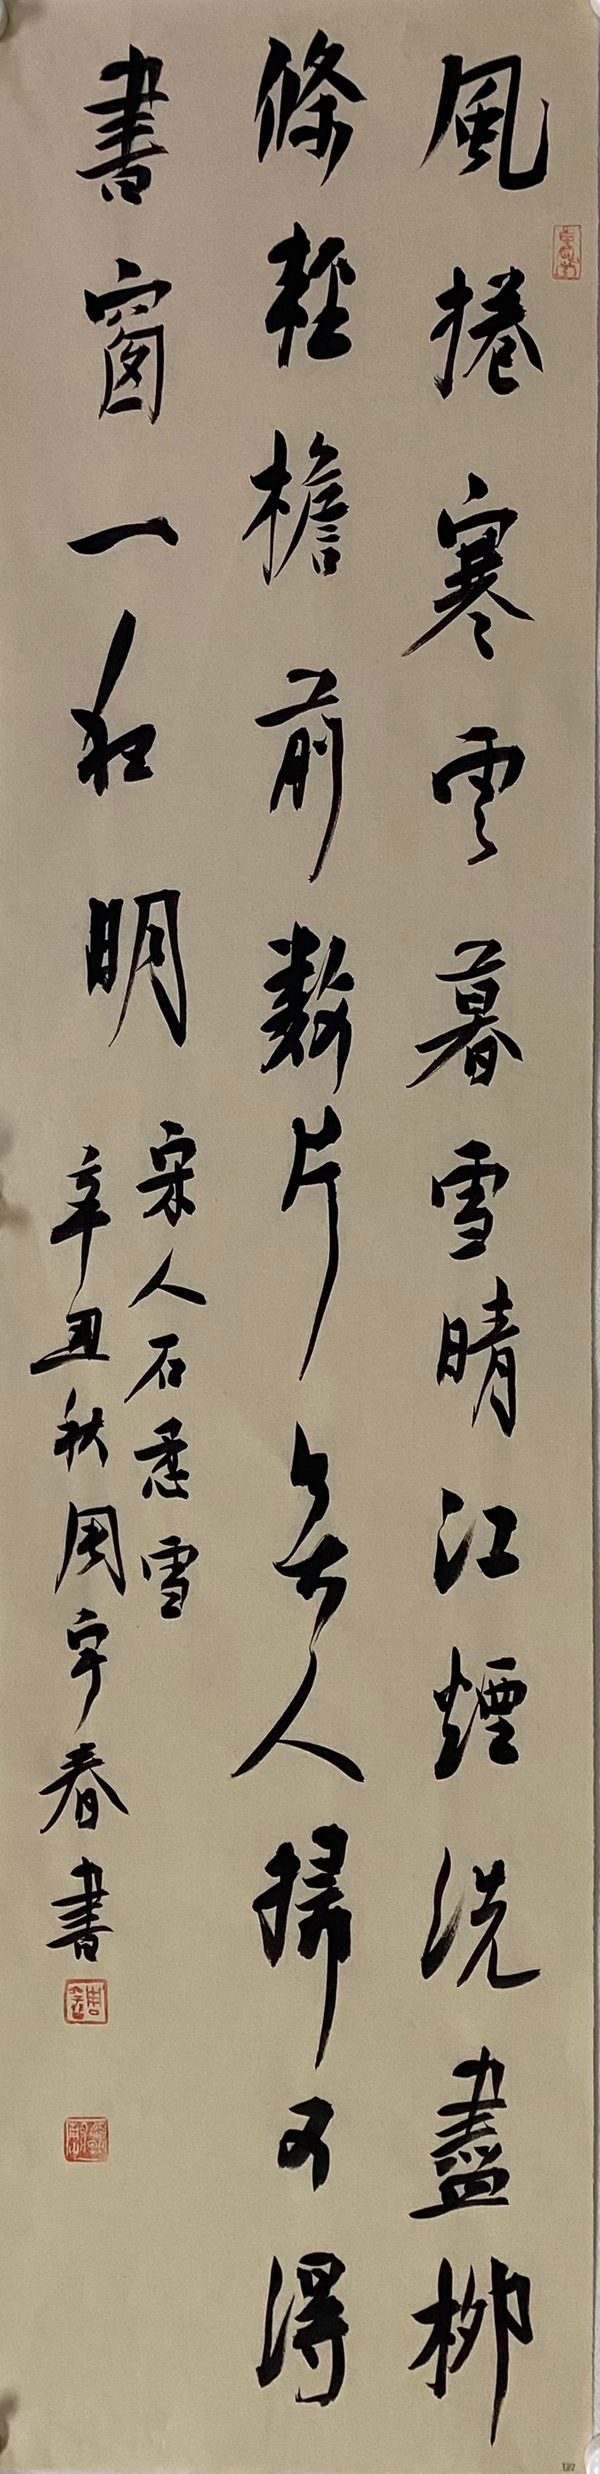 風捲寒雲暮雪晴江煙洗盡柳
條輕檐前數片無人掃又得
書窗一夜明
宋人石雪
辛丑秋周宇春書